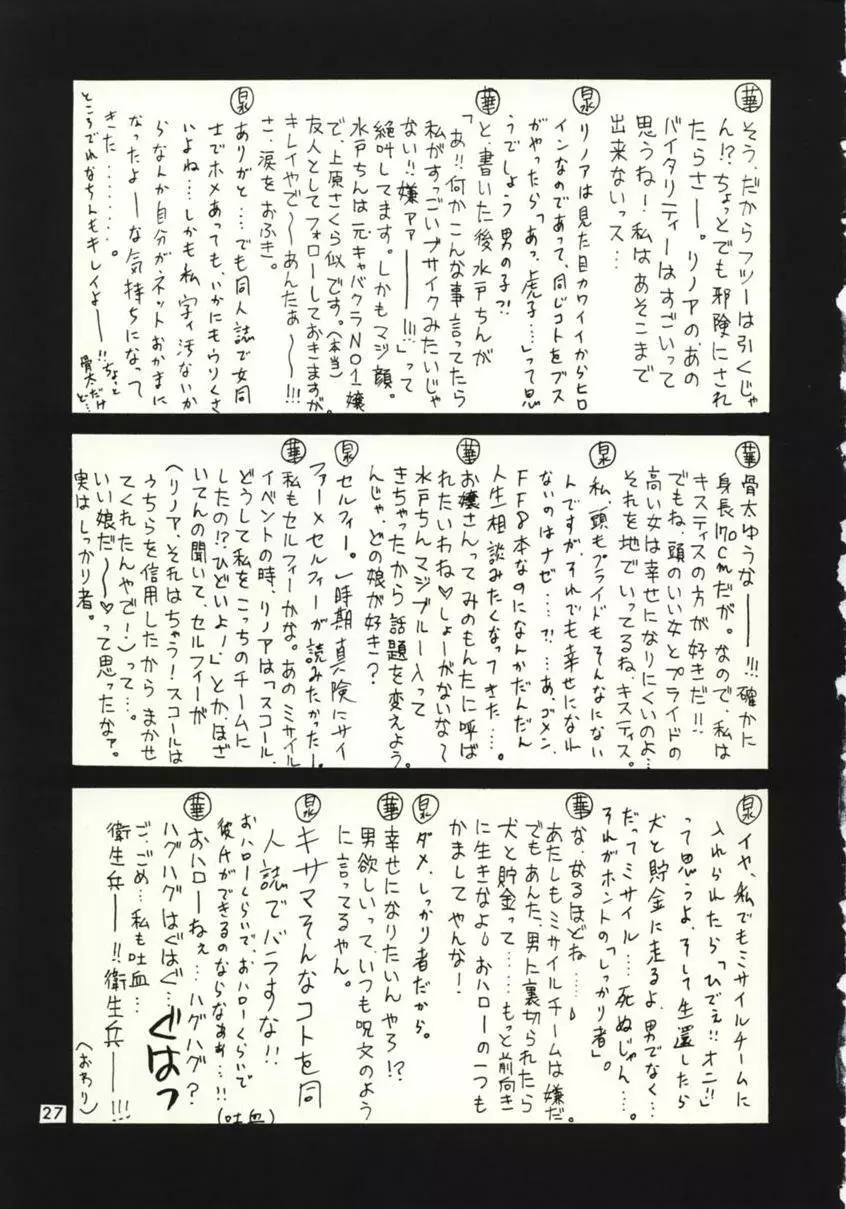 華 そう、だからフツーは引くじゃ
ん!?ちょっとでも邪険にされ
たらさー。リノアのあの
バイタリティーはすごいって
思うね!私はあそこまで
出来ないっス…
泉 リノアは見た目カワイイからヒロ
インなのであって、同じコトをブス
がやったら「あっ、虎子…」って思
うでしょう男の子?!
華 と、書いた後水戸ちんが
「あ!!何かこんな事言ってたら
私がすっごいブサイクみたいじゃ
ない!!嫌ァァ———!!!」って
絶叫してます。しかもマジ顔。
水戸ちんは元・キャバクラNO1嬢
で、上原さくら似です。(本当)
友人としてフォローしておきますが、
キレイやで〜〜あんたぁ〜〜!!!
さ、涙をおふき。
泉 ありがと…でも同人誌で女同
士でホメあっても、いかにもウリくさ
いよね…しかも私、字ィ汚ないか
らなんか自分がネットおかまに
なったよーな気持ちになって
きた………。
ところでれなちんもキレイよ———!!ちょっと
骨太だけ
ど…
華 骨太ゆうな———!!!確かに
身長170cmだが。なので、私は
キスティスの方が好きだ!!
でもね、頭のいい女とプライドの
高い女は幸せになりにくいのよ…
それを地でいってるね、キスティス。
泉 私、頭もプライドもそんなにない
んですが、それでも幸せになれ
ないのはナゼ…?!…あ、ゴメン、
FF8本なのになんかだんだん
人生相談みたくなってきた…。
華 お嬢さんってみのもんたに呼ば
れたいわね♡しょーがないな〜
水戸ちんマジブルー入って
きちゃったから話題を変えよう。
んじゃ、どの娘が好き?
泉 セルフィー。一時期真険にサイ
ファー×セルフィーが読みたかったー。
華 私もセルフィーかな。あのミサイル
イベントの時、リノアは「スコール、
どうして私をこっちのチームに
したの!?ひどいよ!」とか、ほざ
いてんの聞いて、セルフィーが
(リノア、それはちゃう!スコールは
うちらを信用したからまかせ
てくれたんやで!)って…。
いい娘だ〜〜♡って思ったなァ。
実はしっかり者。
泉 イヤ、私でもミサイルチームに
入れられたら「ひでえ!!オニ!!」
って思うよ、そして生還したら
犬と貯金に走るよ、男でなく…
だってミサイル…死ぬじゃん…。
それがホントの「しっかり者」。
華 な、なるほどね…
あたしもミサイルチームは嫌だ。
でもあんた、男に裏切られたら
犬と貯金って……もっと前向き
に生きなよ おハローの一つも
かましてやんな!
泉 ダメ、しっかり者だから。
華 幸せになりたいんやろ!?
男欲しいって、いつも呪文のよう
に言ってるやん。
泉 キサマそんなコトを同
人誌でバラすな!!
おハローくらいで、おハローくらいで
彼氏ができるのならなぁぁ…!!
(吐血)
華 おハローねぇ…ハグハグ?
ハグハグはぐはぐ…ぐはっ
ご、ごめ…私も吐血…
衛生兵——!!衛生兵——!!!
(おわり)
27